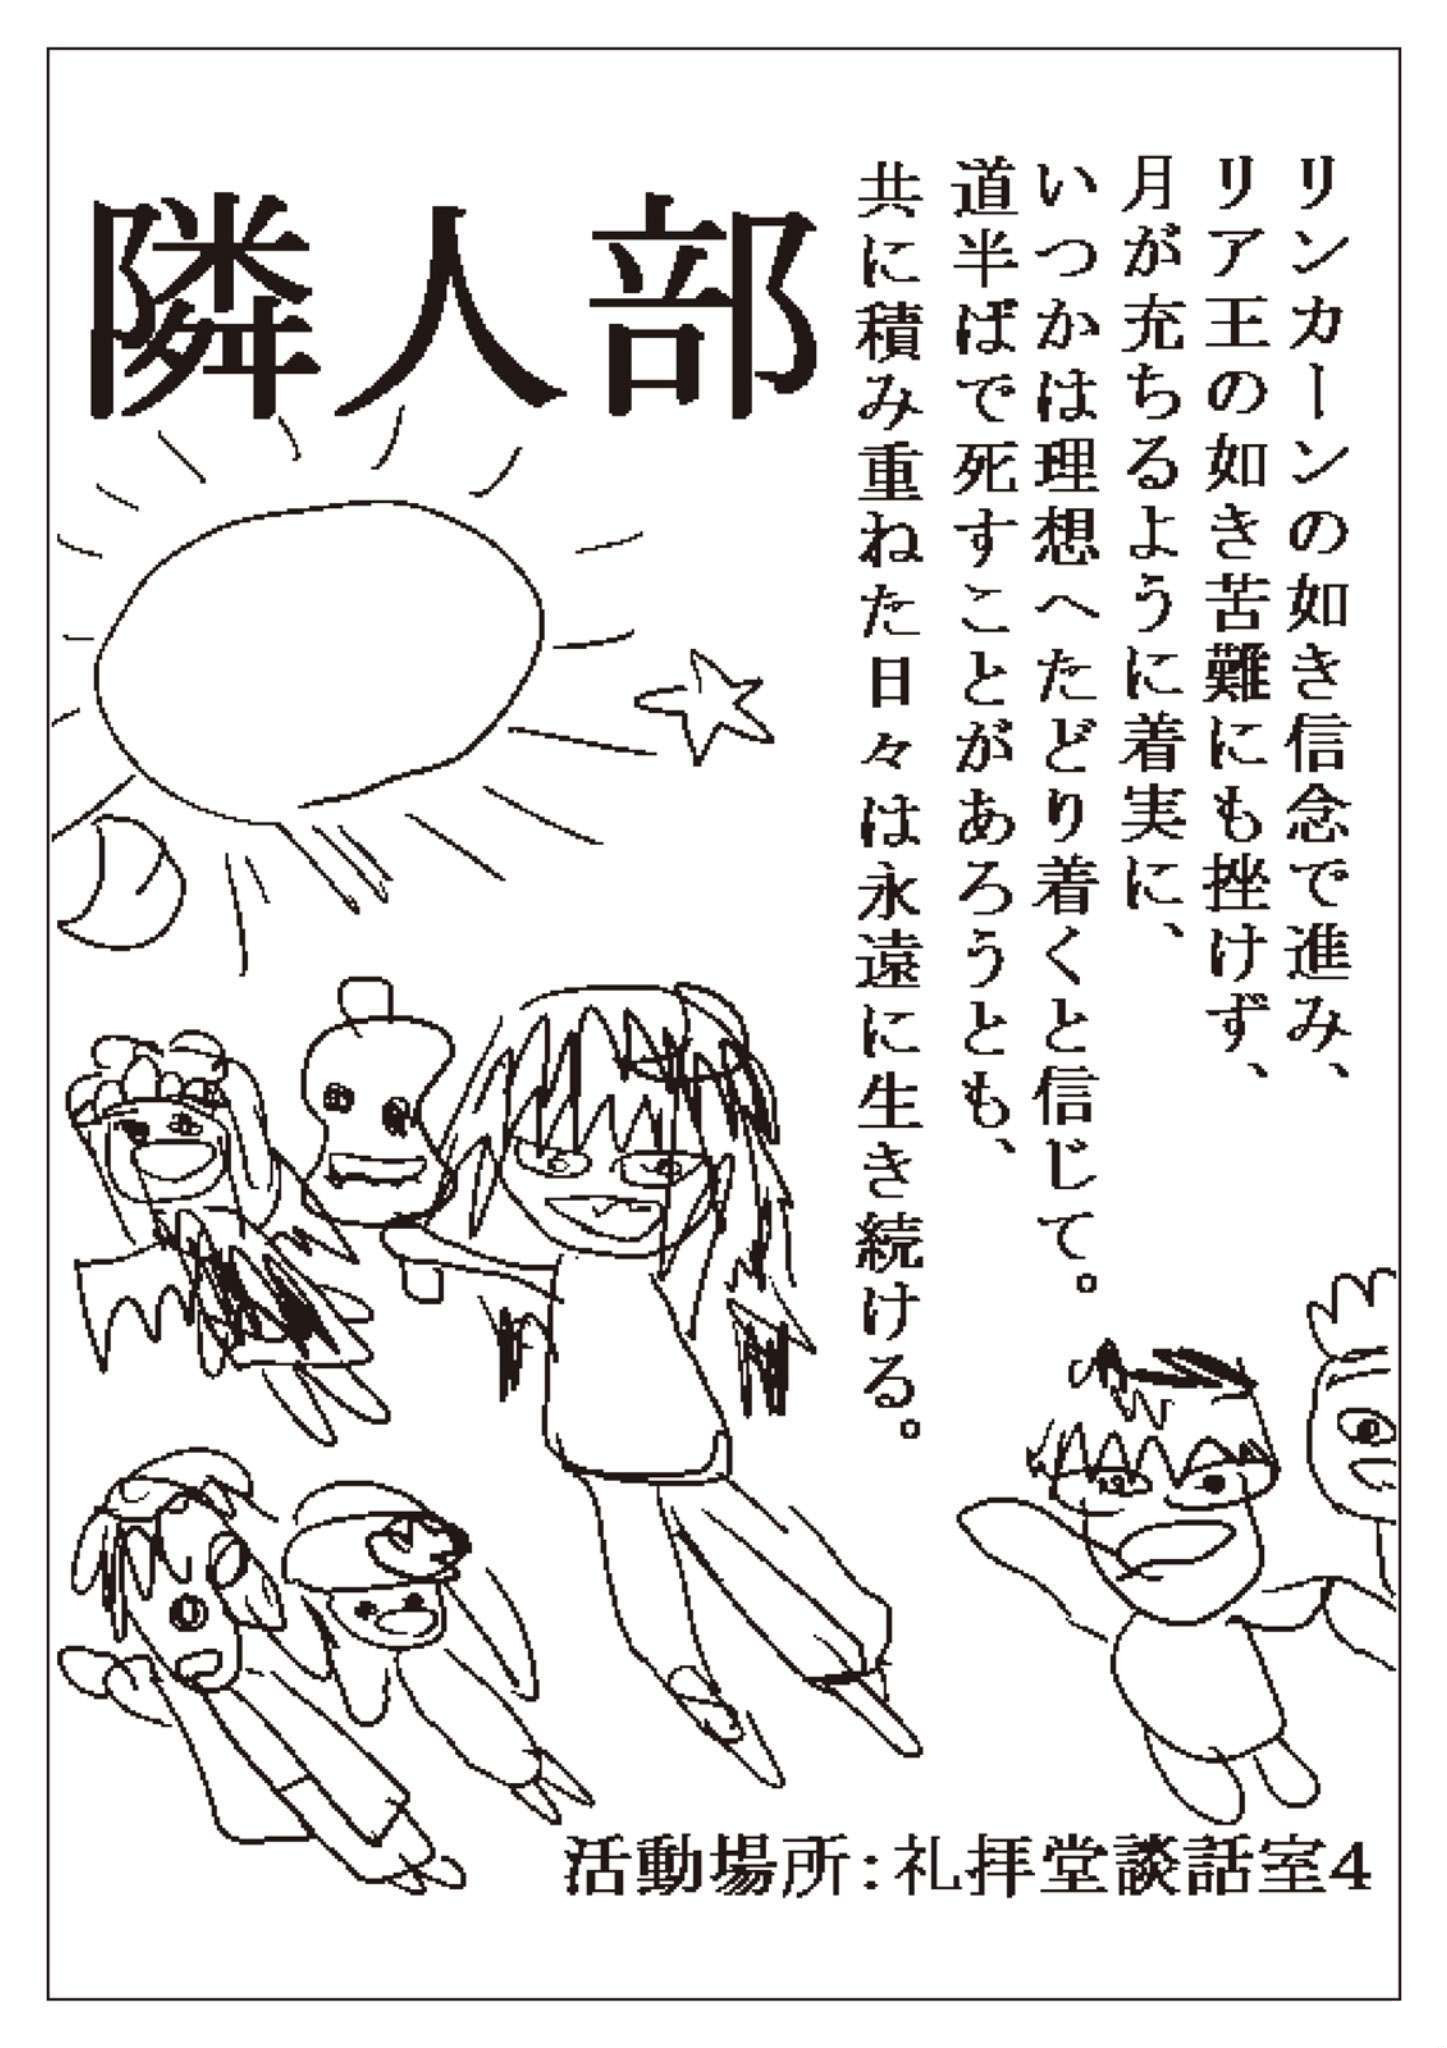 隣人部
リンカーンの如き信念で進み、
リア王の如き苦難にも挫けず、
月が充ちるように着実に、
いつかは理想へたどり着くと信じて。
道半ばで死すことがあろうとも、
共に積み重ねた日々は永遠に生き続ける。
活動場所:礼拝堂談話室4